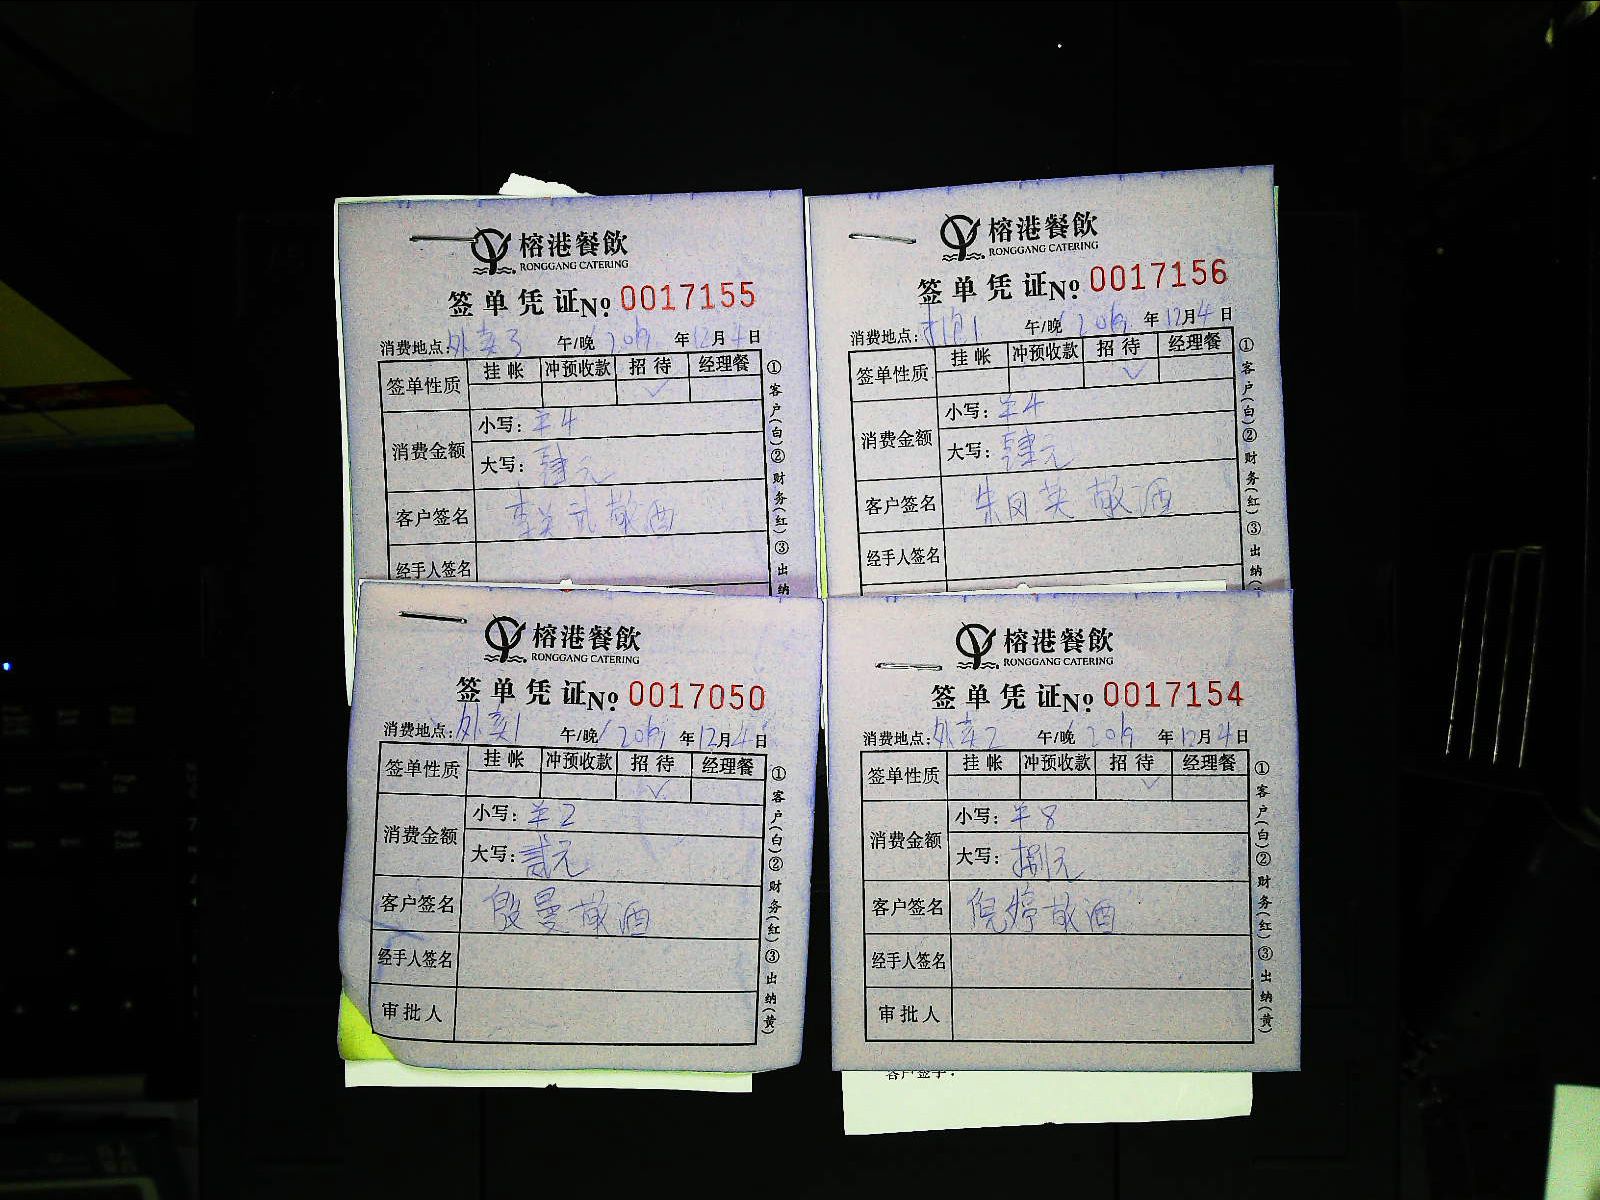 榕港餐飲
RONGGANG CATERING
签单凭证№ 0017155
消费地点：外卖3 午/晚 2019年12月4日
签单性质 挂帐 冲预收款 招待 经理餐
✓
消费金额 小写：¥4
大写：肆元
客户签名 敬酒
经手人签名
①客户(白)②财务(红)③出纳
榕港餐飲
RONGGANG CATERING
签单凭证№ 0017156
消费地点： 午/晚 2019年12月4日
签单性质 挂帐 冲预收款 招待 经理餐
✓
消费金额 小写：¥4
大写：肆元
客户签名 朱凤英敬酒
经手人签名
①客户(白)②财务(红)③出纳(
榕港餐飲
RONGGANG CATERING
签单凭证№ 0017050
消费地点：外卖1 午/晚 2019年12月4日
签单性质 挂帐 冲预收款 招待 经理餐
✓
消费金额 小写：¥2
大写：贰元
客户签名 殷曼敬酒
经手人签名
审批人
①客户(白)②财务(红)③出纳(黄)
榕港餐飲
RONGGANG CATERING
签单凭证№ 0017154
消费地点：外卖2 午/晚 2019年12月4日
签单性质 挂帐 冲预收款 招待 经理餐
✓
消费金额 小写：¥8
大写：捌元
客户签名 倪婷敬酒
经手人签名
审批人
①客户(白)②财务(红)③出纳(黄)
客户签字：